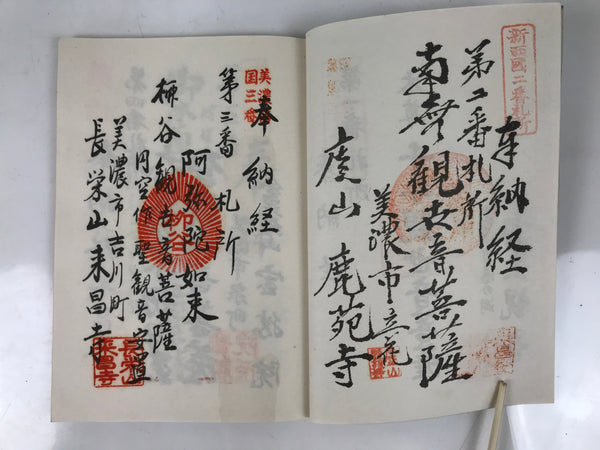 新西國二番札所
奉納経
第二番札所
南無観世音菩薩
美濃市立花
鹿苑寺
美濃西国三番
奉納経
第三番札所
阿弥陀如来
柳谷観世音菩薩
柳谷
円空作聖観音安置
美濃市吉川町
長栄山来昌寺